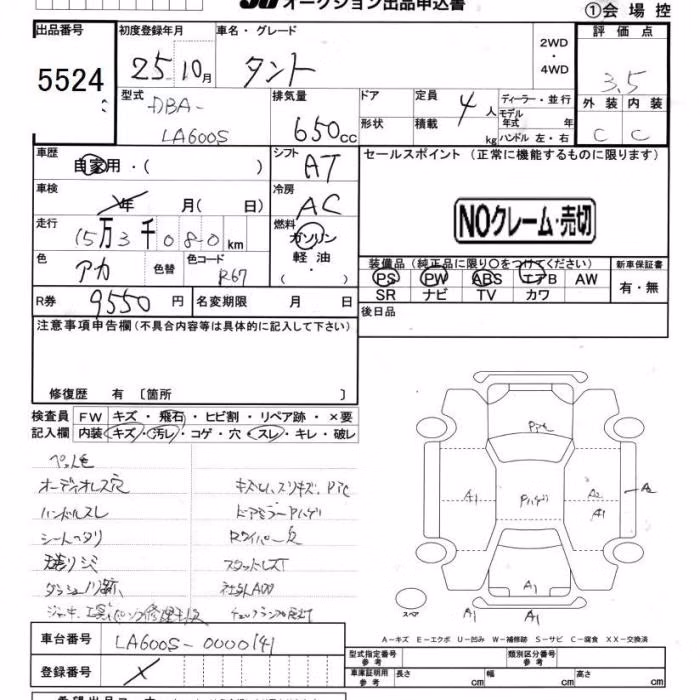 オークション出品申込書
①会場控
出品番号
5524
初度登録年月
25 10月
車名・グレード
タント
2WD
・
4WD
評価点
3.5
型式
DBA-
LA600S
排気量
650cc
ドア
定員
4人
ディーラー・並行
形状
積載
kg
モデル年式 年
ハンドル 左・右
外装 内装
C C
車歴
自家用・( )
シフト
AT
セールスポイント(正常に機能するものに限ります)
車検
年 月( 日)
冷房
AC
NOクレーム・売切
走行
15万3千080km
燃料
ガソリン
軽油・
( )
色
アカ
色替
色コード
R67
装備品(純正品に限り○をつけてください)
新車保証書
PS PW ABS エアB AW
SR ナビ TV カワ
有・無
R券
9550円
名変期限 月 日
後日品
注意事項申告欄(不具合内容等は具体的に記入して下さい)
修復歴 有〔箇所 〕
検査員
記入欄
FW キズ・飛石・ヒビ割・リペア跡・×要
内装 キズ・汚レ・コゲ・穴・スレ・キレ・破レ
オーディオレス穴
ハンドルスレ
シートヘタリ
ドアミラーAハゲ
A1
A2
A2
A1
A1
A1
スペア
A-キズ E-エクボ U-凹み W-補修跡 S-サビ C-腐食 XX-交換済
車台番号
LA600S-0000141
登録番号
型式指定番号
参考
類別区分番号
参考
車庫証明用
参考
長さ cm
幅 cm
高さ cm